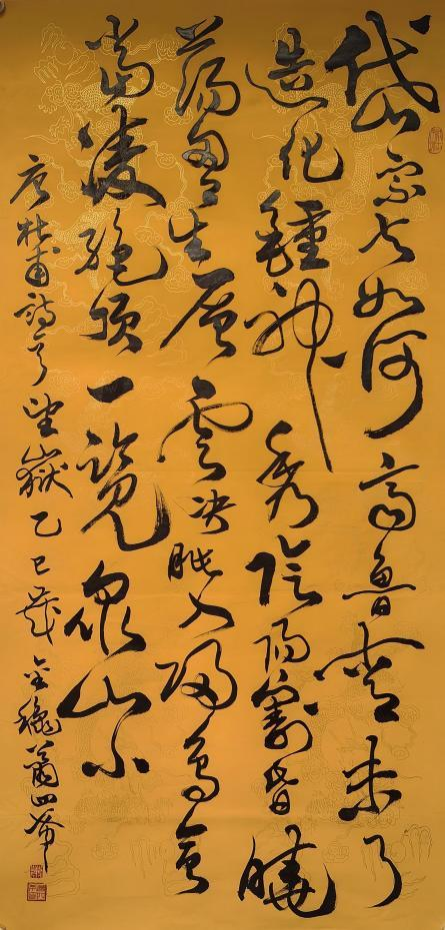 岱宗夫如何齊魯青未了
造化鍾神秀陰陽割昏曉
蕩胸生層雲決眥入歸鳥會
當凌絕頂一覽眾山小
唐杜甫詩望嶽乙巳歲金穐蕭四